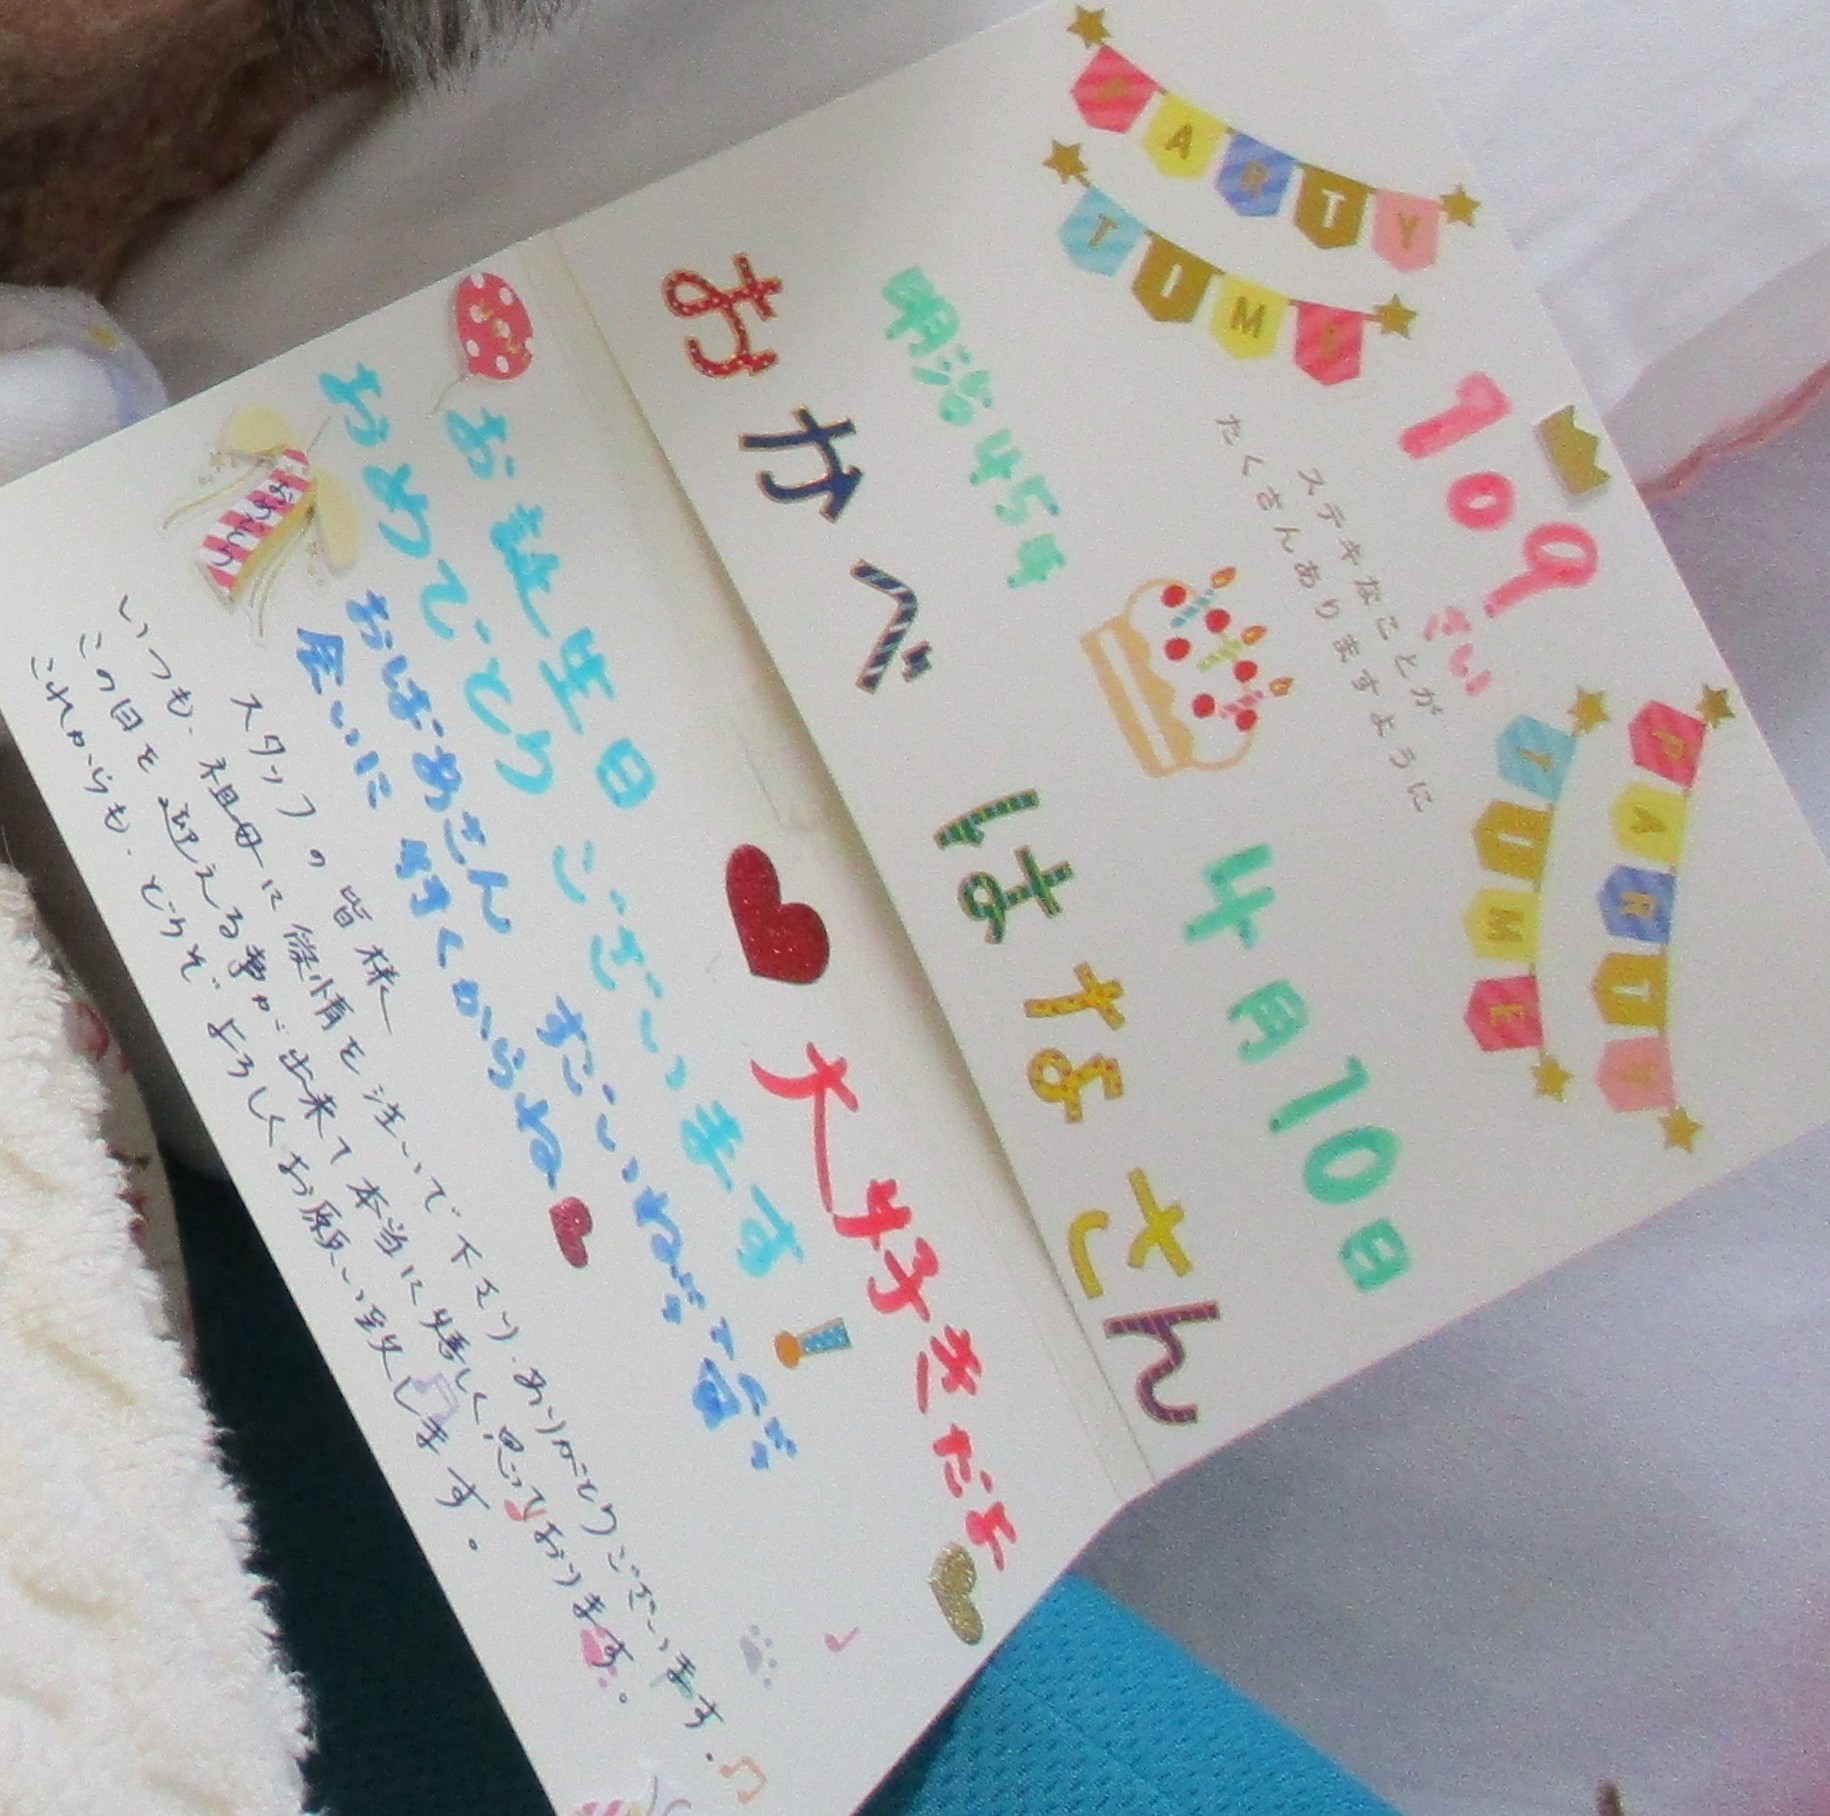 PARTY
TIME
109
さい
PARTY
TIME
ステキなことが
たくさんありますように
明治45年
4月10日
おかべ はなさん
大好きだよ
お誕生日 ございます
おめでとう
すごいね
おばあさん
会いに行くからね
おめでとう
スタッフの皆様へ
いつも、祖母に愛情を注いで下さり、ありがとうございます。
この日を迎える事が出来て本当に嬉しく思っております。
これからも、どうぞよろしくお願い致します。